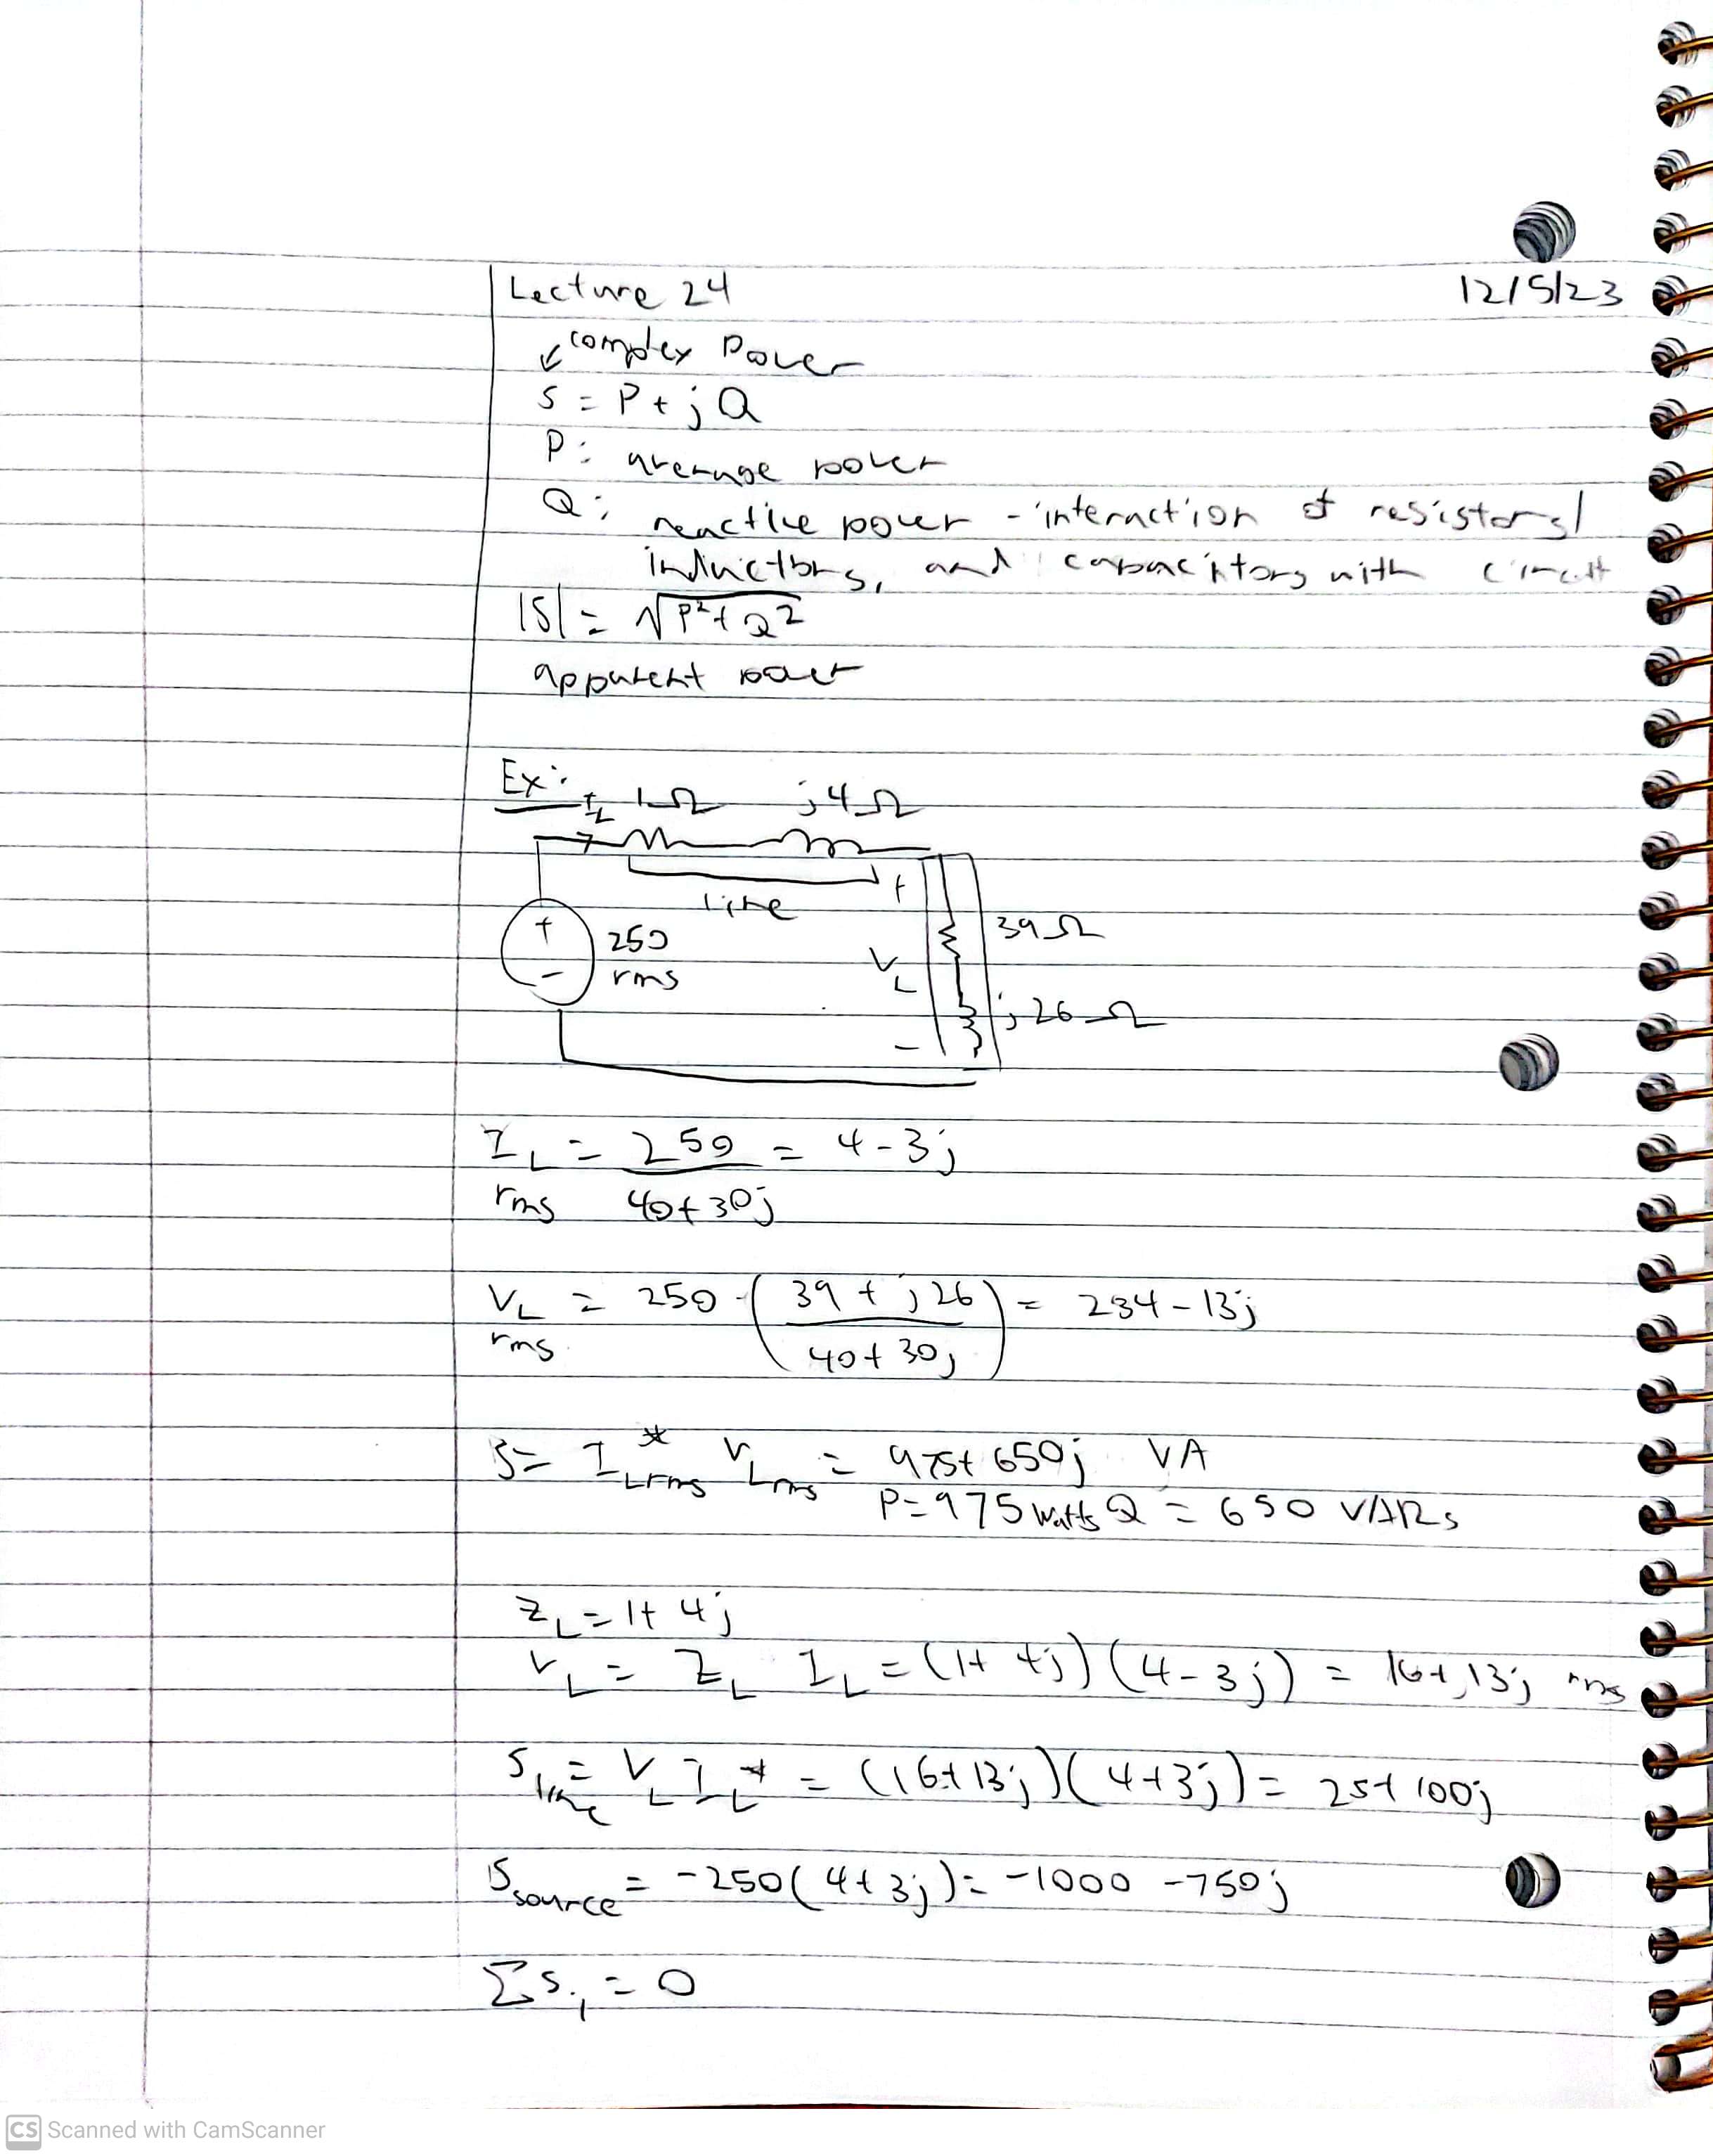 Lecture 24
12/5/23
complex Power
S = P + jQ
P: average power
Q: reactive power - interaction of resistors,
inductors, and capacitors with circuit
|S| = √P²+Q²
apparent power
Ex:
I_L 1Ω j4Ω
line
+
39Ω
+
250
rms
V_L
-
j26Ω
-
I_L = 250 = 4-3j
rms 40+30j
V_L = 250 · (39 + j26) = 234 - 13j
rms 40+30j
S = I_Lrms* V_Lrms = 975+650j VA
P=975 Watts Q = 650 VARs
Z_L = 1+4j
V_L = Z_L I_L = (1+4j)(4-3j) = 16+13j rms
S_line = V_L I_L* = (16+13j)(4+3j) = 25+100j
S_source = -250(4+3j) = -1000 -750j
ΣS_i = 0
CS Scanned with CamScanner